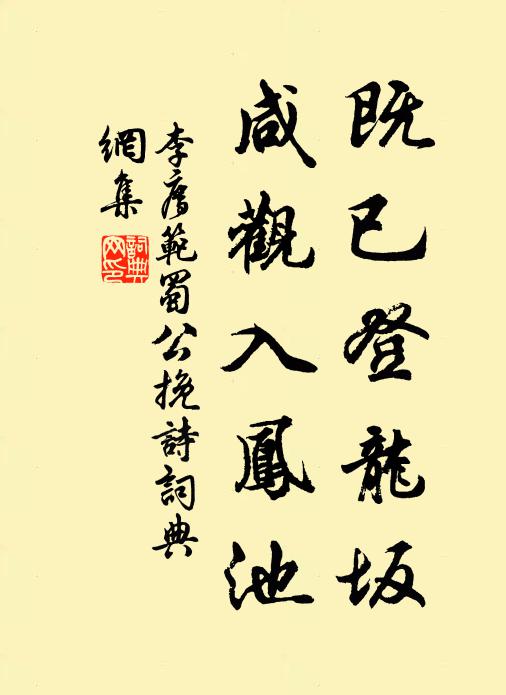 既已登龍坂
咸觀入鳳池
李廌範蜀公挽詩詞典
網集
詞典
网印